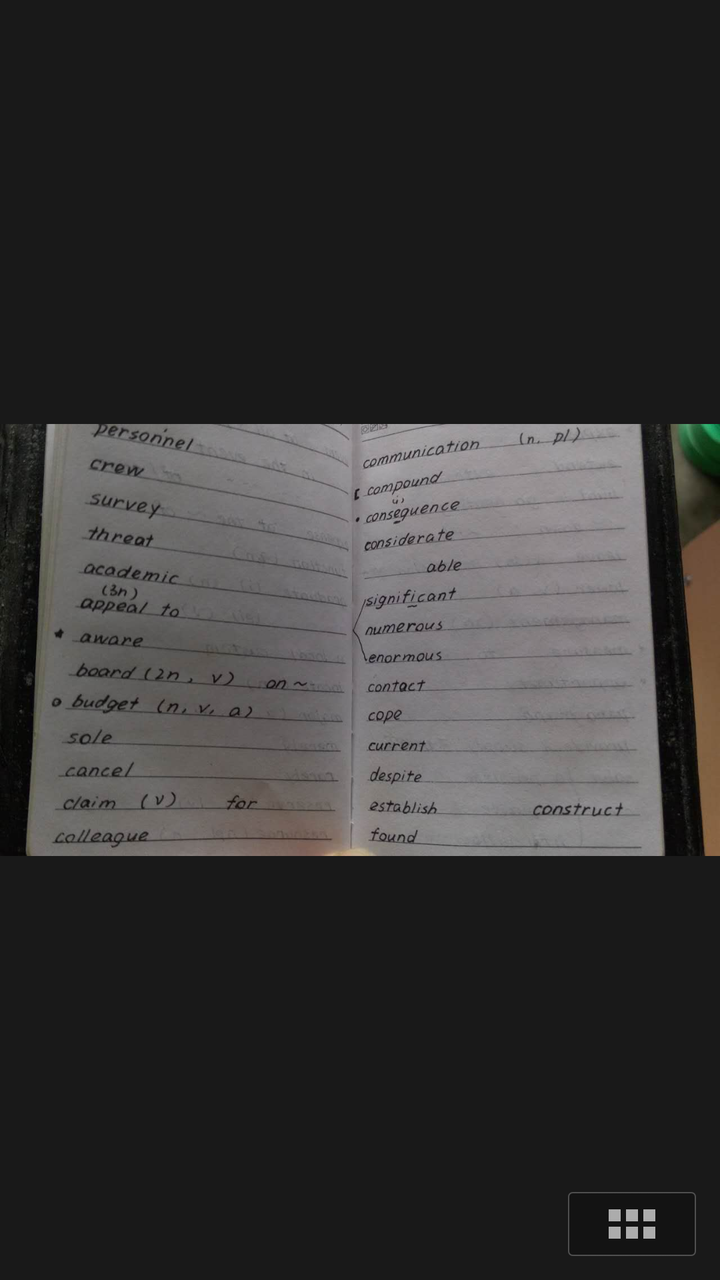 personnel
crew
survey
threat
academic
(3n)
appeal to
* aware
board (2n, v) on ~
o budget (n, v, a)
sole
cancel
claim (v) for
colleague
communication (n. pl)
[ compound
• consequence
considerate
able
significant
numerous
enormous
contact
cope
current
despite
establish construct
found